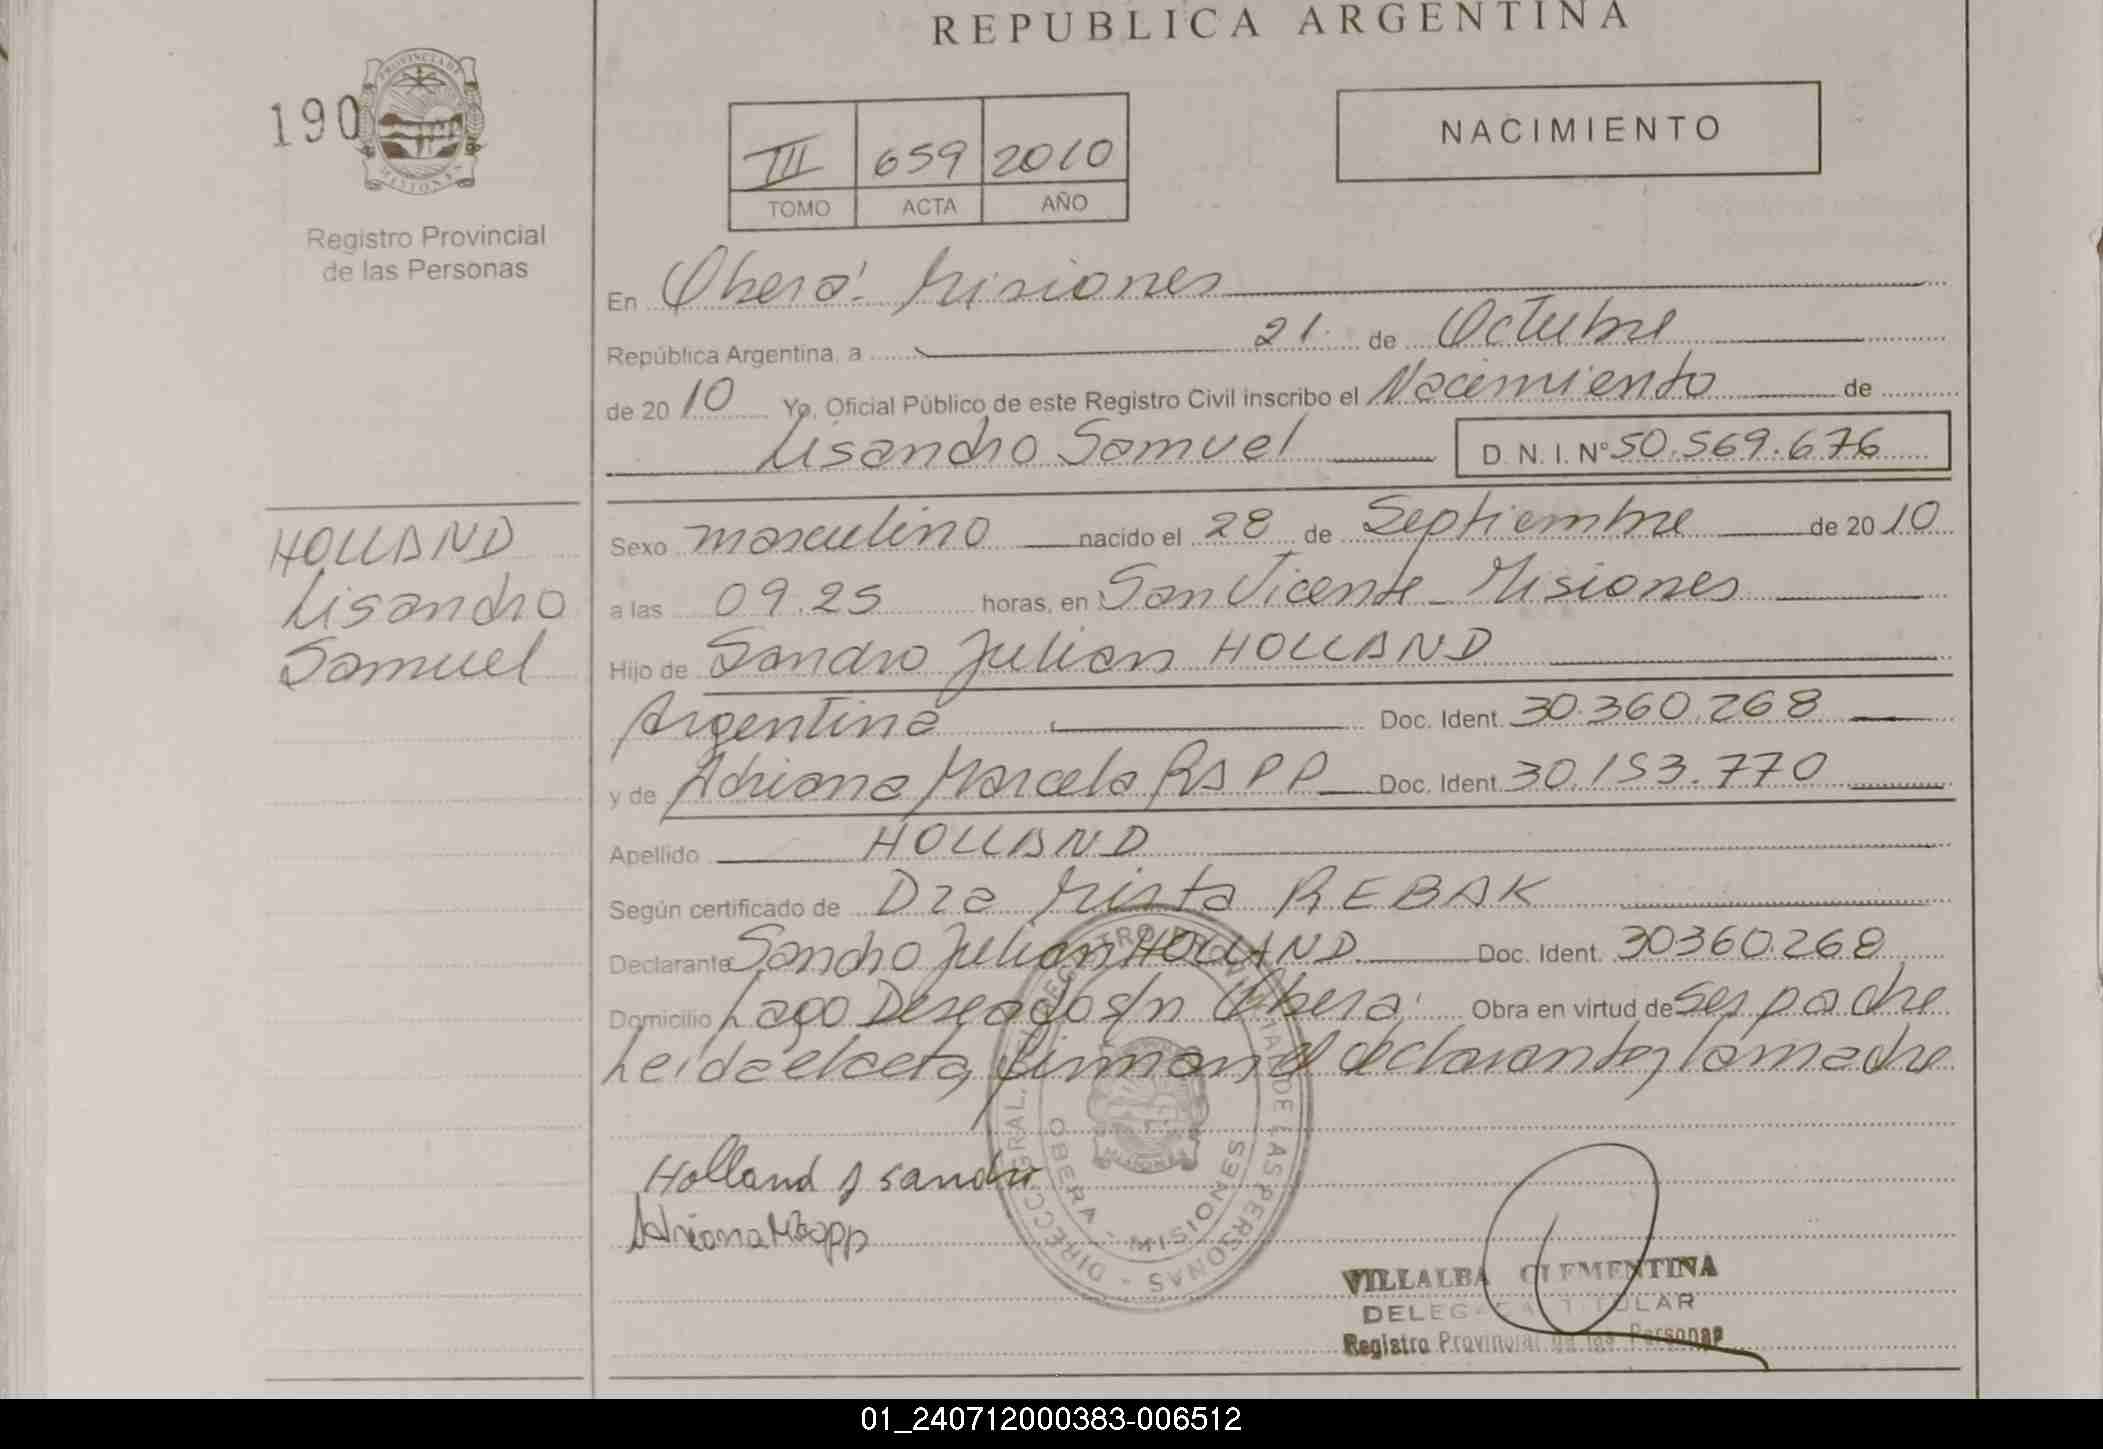 REPUBLICA ARGENTINA
190
PROVINCIA DE
MISIONES
Registro Provincial
de las Personas
III 659 2010
TOMO ACTA AÑO
NACIMIENTO
En Oberá. Misiones
República Argentina, a 21 de Octubre
de 20 10 Yo, Oficial Público de este Registro Civil inscribo el Nacimiento de
Lisandro Samuel D. N. I. Nº 50.569.676
HOLLAND
Lisandro
Samuel
Sexo masculino nacido el 28 de Septiembre de 20 10
a las 09.25 horas, en San Vicente - Misiones
Hijo de Sandro Julian HOLLAND
Argentina Doc. Ident. 30.360.268
y de Adriana Marcela RAPP Doc. Ident. 30.153.770
Apellido HOLLAND
Según certificado de Dra Mirta REBAK
Declarante Sandro Julian HOLLAND Doc. Ident. 30360.268
Domicilio Lago Deseado s/n Oberá Obra en virtud de Ser padre
Leida el acta, firman el declarante y la madre
Holland J Sandro
Adriana M Rapp
OBERA - MISIONES
VILLALBA CLEMENTINA
DELEGADA TITULAR
Registro Provincial de las Personas
01_240712000383-006512